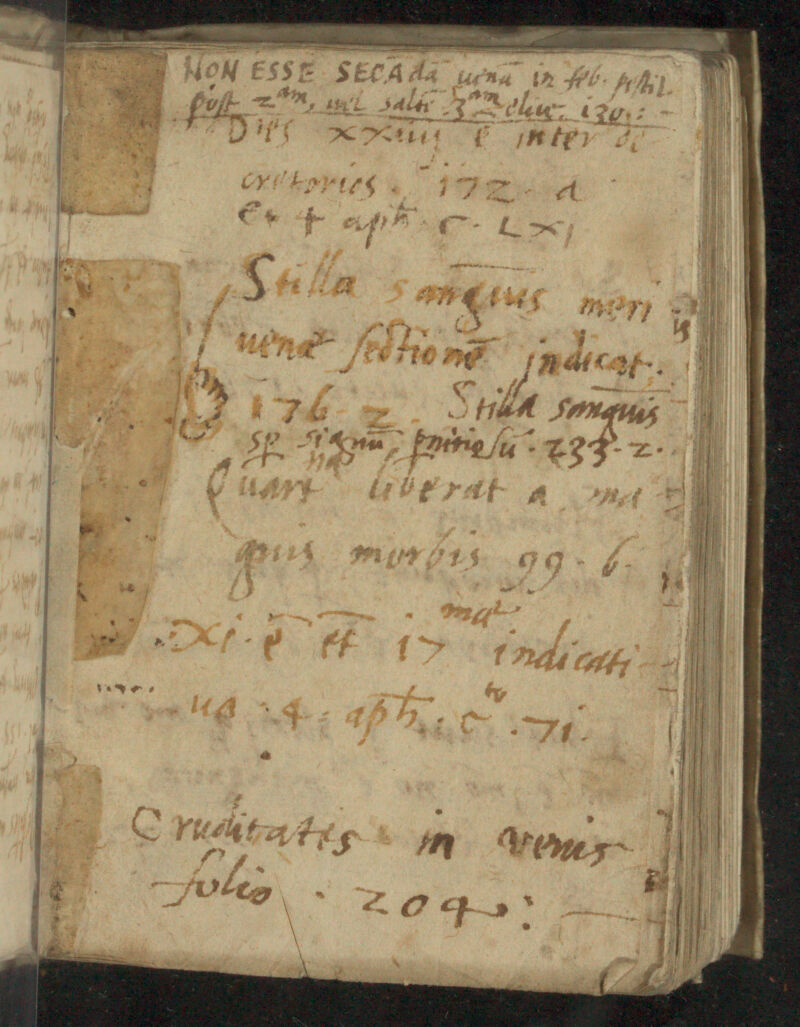 NON ESSE SECĀdā uenā in feb. pestil.
post 2am, uel saltē 3am 130.:
Dies xxiiij ē inter de
cretorios. 172. a
Ex 4 aph. c. LXI
Stilla sanguis meri
uenæ sectionē indicat.
176. 2. Stilla sanguis
sp signū pnitiosū. 233. 2.
Quartna liberat a ma
gnis morbis 99. b.
XI. ē et 17mæ indicati
ua. 4. aph. cto. 71.
Cruditates in venis
folio. 204: